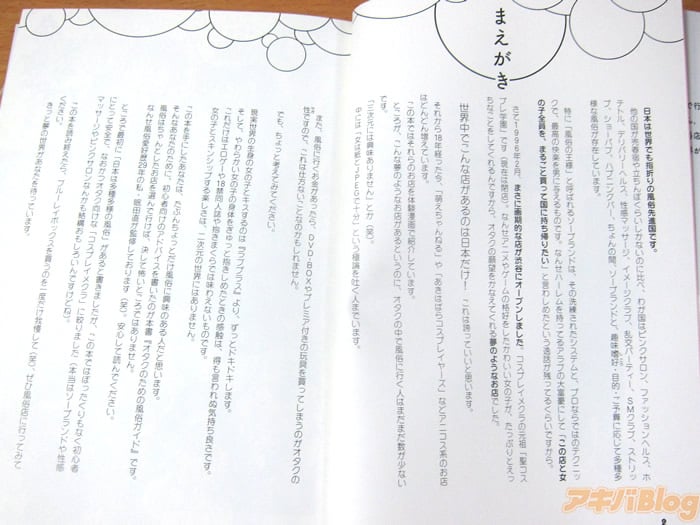 まえがき
日本は世界でも指折りの風俗先進国です。
他の国が売春宿や立ちんぼくらいしかないのに比べ、わが国はピンクサロン、ファッションヘルス、ホ
テトル、デリバリーヘルス、性感マッサージ、イメージクラブ、乱交パーティー、SMクラブ、ストリッ
プ、ショーパブ、ハプニングバー、ちょんの間、ソープランドと、趣味嗜好・目的・ご予算に応じて多種多
様な風俗が存在しています。
特に「風俗の王様」と呼ばれるソープランドは、その洗練されたシステムと、プロならではのテクニッ
クで、最高の快楽を男に与えるものです。なんせハーレムを持ってるアラブの大富豪にして「この店と女
の子全員を、まるごと買って国に持ち帰りたい」と言わしめたという逸話が残ってるくらいですから。
さて1996年6月、まさに画期的な店が渋谷にオープンしました。コスプレイメクラの元祖「聖コス
プレ学園」です(現在は閉店)。なんせアニメやゲームの格好をしたかわいい女の子が、たっぷりとえっ
ちなことをしてくれるんですから、オタクの願望をかなえてくれる夢のようなお店でした。
世界中でこんな店があるのは日本だけ! これは誇っていいと思います。
それから18年経った今、「萌えちゃんねる」や「あきばぱらコスプレイヤーズ」などアニコス系のお店
はどんどん増えています。
この本ではそれらのお店を体験漫画で紹介しています。
ところが、こんな夢のようなお店があるというのに、オタクの中で風俗に行く人はまだまだ数が少ない
です。
「三次元には興味ありません」とか(笑)。
中には「女は紙とJPEGで十分」という極論を吐く人までいます。
また、風俗に行くお金があったら、DVD-BOXやプレミア付きの玩具を買ってしまうのがオタクの
性ですので、これは仕方ないことなのかもしれません。
でも、ちょっと考えてみてください。
現実世界の生身の女の子とキスするのは『ラブプラス』より、ずっとドキドキします。
そして、やわらかい女の子の身体をぎゅっと抱きしめたときの感触は、得も言われぬ気持ち良さです。
これだけはエロゲーや18禁同人誌や抱きまくらでは味わえないものです。
女の子とスキンシップする楽しさは、二次元の世界にはありません。
この本を手にしたあなたは、たぶんちょっとだけ風俗に興味のある人だと思います。
そんなあなたのために、初心者向けのアドバイスを書いたのが本書『オタクのための風俗ガイド』です。
風俗はちゃんとしたお店を選んで行けば、決して怖いところではありません。
なんせ風俗愛好歴29年の私・眠田直が監修しております(笑)。安心して読んでください。
ところで最初に「日本は多種多様の風俗」があると書きましたが、この本ではぼったくりもなく初心者
にとって安全で、なおかつオタク向けな「コスプレイメクラ」に絞りました(本当はソープランドや性感
マッサージやピンクサロンなんかも結構おもしろいんですけどね)。
この本を読み終えたら、ブルーレイボックスを買うのを一度だけ我慢して(笑)、ぜひ風俗店に行ってみて
ください。
きっと夢の世界があなたを待っています。
2
アキバBlog